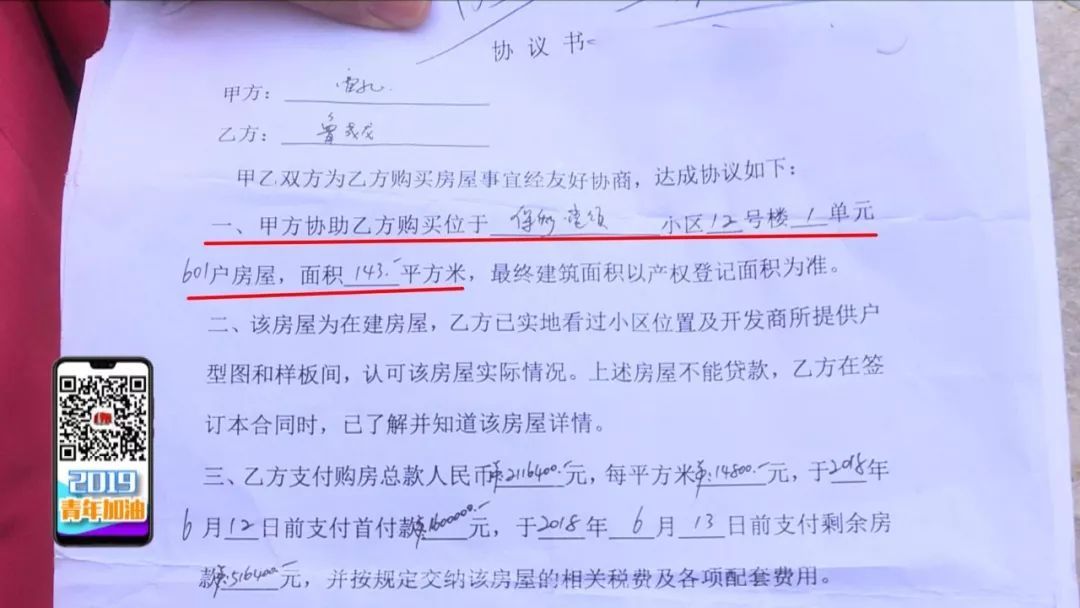 协议书
甲方：
乙方：
甲乙双方为乙方购买房屋事宜经友好协商，达成协议如下：
一、甲方协助乙方购买位于 保利 小区12号楼1单元
601户房屋，面积143.-平方米，最终建筑面积以产权登记面积为准。
二、该房屋为在建房屋，乙方已实地看过小区位置及开发商所提供户
型图和样板间，认可该房屋实际情况。上述房屋不能贷款，乙方在签
订本合同时，已了解并知道该房屋详情。
三、乙方支付购房总款人民币2116400.-元，每平方米14800.-元，于2018年
6月12日前支付首付款1600000.-元，于2018年6月13日前支付剩余房
款516400.-元，并按规定交纳该房屋的相关税费及各项配套费用。
2019
青年加油